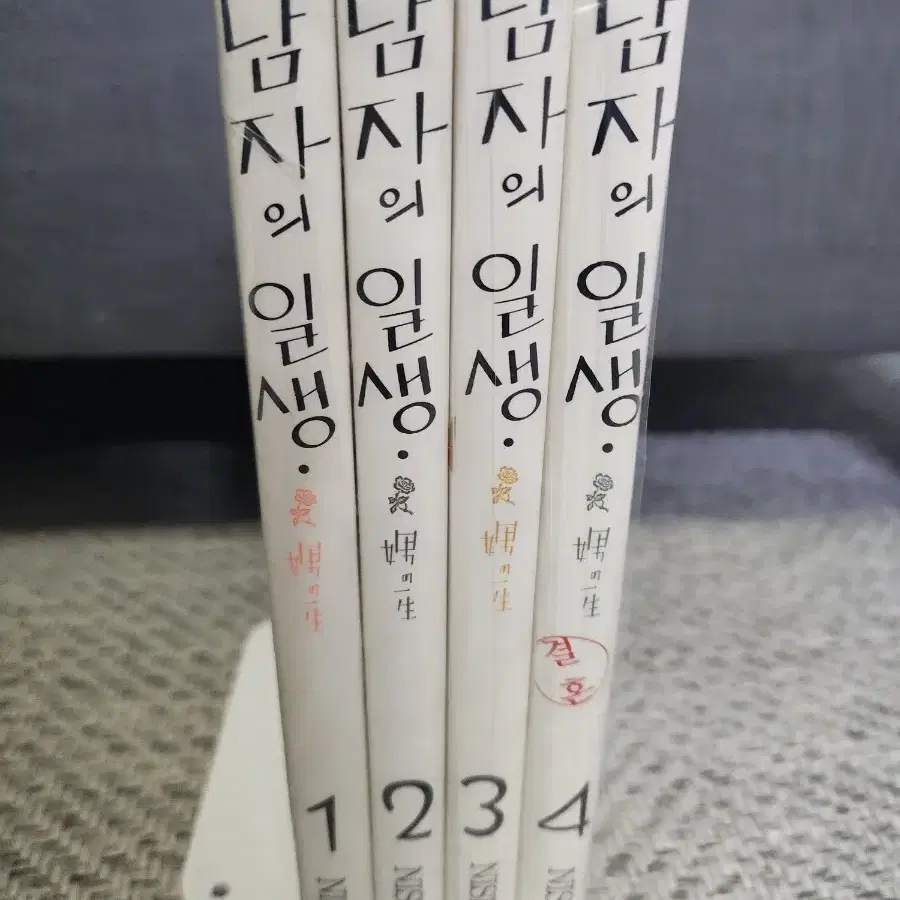 남자의 일생.
娚の一生
1
NI
남자의 일생.
娚の一生
2
NIS
남자의 일생.
娚の一生
3
NIS
남자의 일생.
娚の一生
결혼
4
NIS